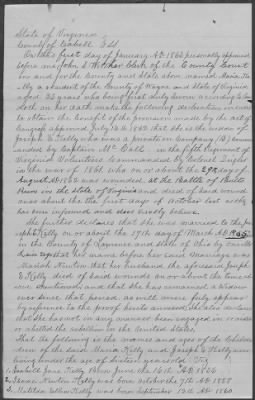 State of Virginia
County of Cabell SS
On this first day of January A.D. 1863 personally appeared
before me John S. Clerk of the County Court
in and for the County and State above named Maria
Kelly a resident of the County of Wayne and State of Virginia
aged 23 years who being first duly sworn according to law
doth on her oath make the following declaration in order
to obtain the benefit of the provision made by the act of
Congress approved July 14 1862 that she is the widow of
Joseph E. Kelly who was a private in Company (B) Com-
manded by Captain Mc Call in the fifth Regiment of
Virginia Volunteers Commanded by Colonel Zeigler
in the war of 1861 who on or about the 29th day of
August AD 1862 was wounded at the Battle of Bulls
Run in the State of Virginia and died of said wound
on or about the first day of October last as she
has been informed and does verily believe
She further declares that she was married to the said
Joseph E Kelly on or about the 27th day of March AD 1855
in the County of Lawrence and State of Ohio by one
that her name before her said Marriage was
Mariah Newton that her husband the aforesaid Joseph
E Kelly died of said wounds on or about the time above
mentioned and that she has remained a Widow
ever since that period as will more fully appear
by reference to the proof hereto annexed She also declares
that she has not in any manner been engaged in or aided
or abetted the rebellion in the United States
That the following is the names and ages of the Children
of the said Maria Kelly and Joseph E Kelly now
living under the age of sixteen years old Viz
1. Isabell Jane Kelly Born June the 16th AD 1856
2. Isaac Newton Kelly was born October the 7th AD 1858
3. Ellen Kelly was born September 13th AD 1860